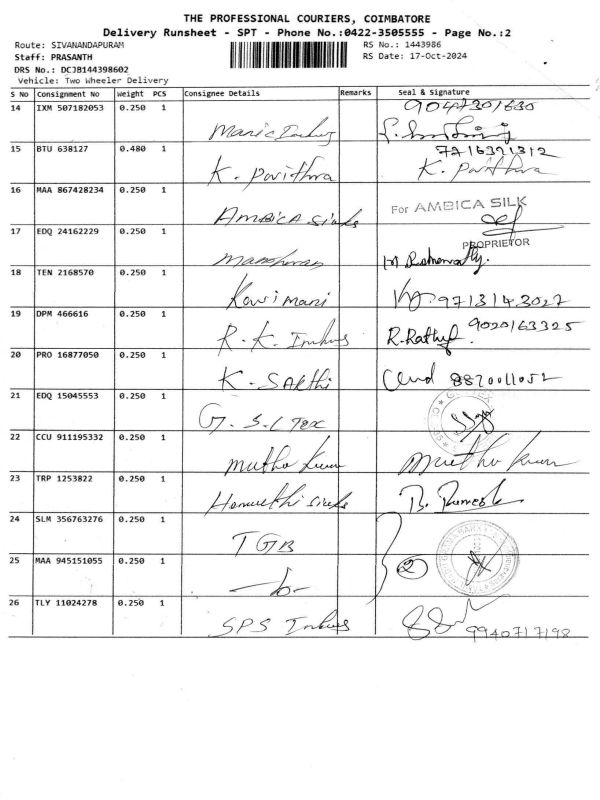 THE PROFESSIONAL COURIERS, COIMBATORE
Delivery Runsheet - SPT - Phone No.:0422-3505555 - Page No.:2
Route: SIVANANDAPURAM RS No.: 1443986
Staff: PRASANTH RS Date: 17-Oct-2024
DRS No.: DCJB144398602
Vehicle: Two Wheeler Delivery
S No Consignment No Weight PCS Consignee Details Remarks seal & signature
14 IXM 507182053 0.250 1 9047301630
15 BTU 638127 0.480 1 7716391312
K. Pavithra K. Pavithra
16 MAA 867428234 0.250 1
AMBICA silks For AMBICA SILK
17 EDQ 24162229 0.250 1 PROPRIETOR
18 TEN 2168570 0.250 1
Kavimani 9713143027
19 DPM 466616 0.250 1 9020163325
R. K. R. Rathy
20 PRO 16877050 0.250 1
K. SAKthi 8870011052
21 EDQ 15045553 0.250 1
G. S. L Tex
22 CCU 911195332 0.250 1
Muthu Kumar Muthu Kumar
23 TRP 1253822 0.250 1
silks B. Ramesh
24 SLM 356763276 0.250 1
TGB
25 MAA 945151055 0.250 1 2
26 TLY 11024278 0.250 1
SPS 9940717198